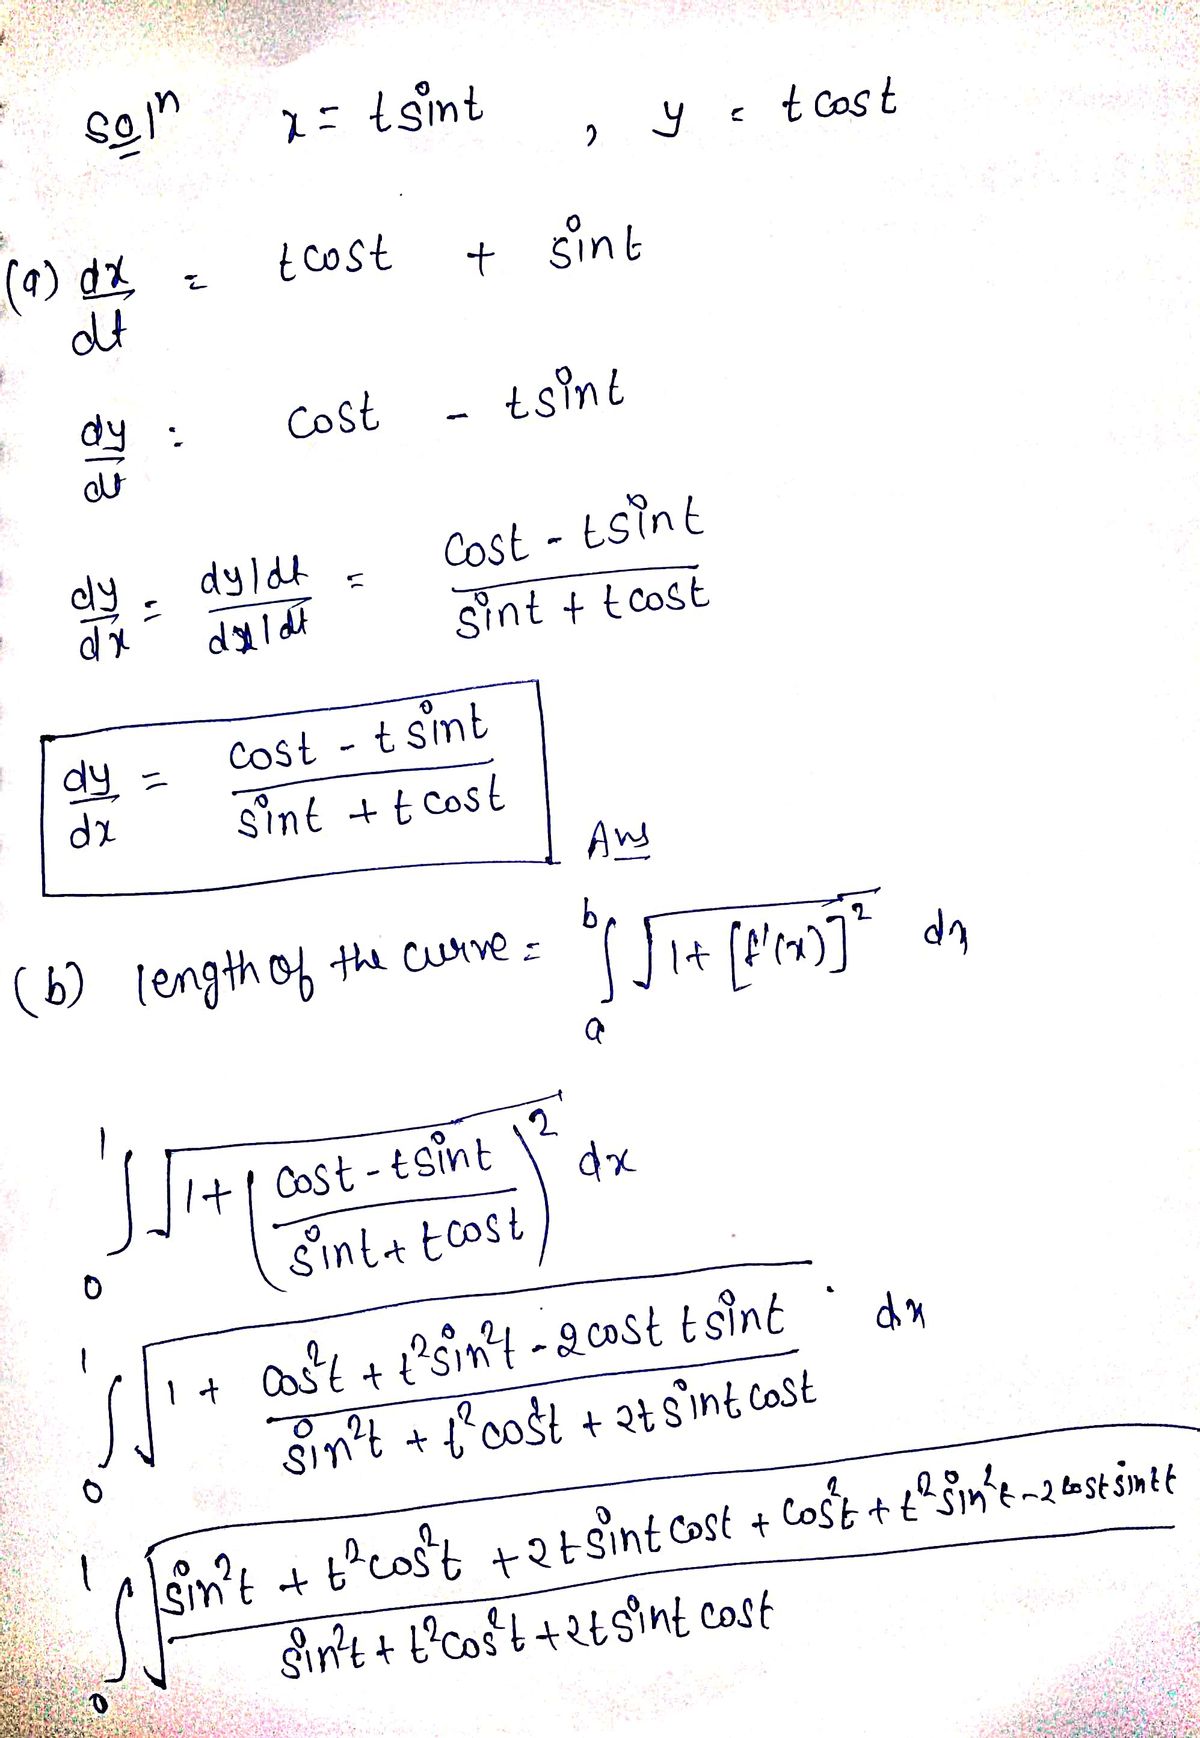 Solⁿ x = t sint , y = t cost
(a) dx/dt = t cost + sint
dy/dt : cost - t sint
dy/dx = (dy/dt)/(dx/dt) = (cost - t sint)/(sint + t cost)
dy/dx = (cost - t sint)/(sint + t cost)
Ans
(b) length of the curve = ∫ₐᵇ √(1 + [f'(x)]²) dx
∫₀¹ √(1 + ((cost - t sint)/(sint + t cost))²) dx
∫₀¹ √(1 + (cos²t + t² sin²t - 2 cost t sint)/(sin²t + t² cos²t + 2t sint cost)) dx
∫₀¹ √((sin²t + t² cos²t + 2t sint cost + cos²t + t² sin²t - 2 cost sint t)/(sin²t + t² cos²t + 2t sint cost))